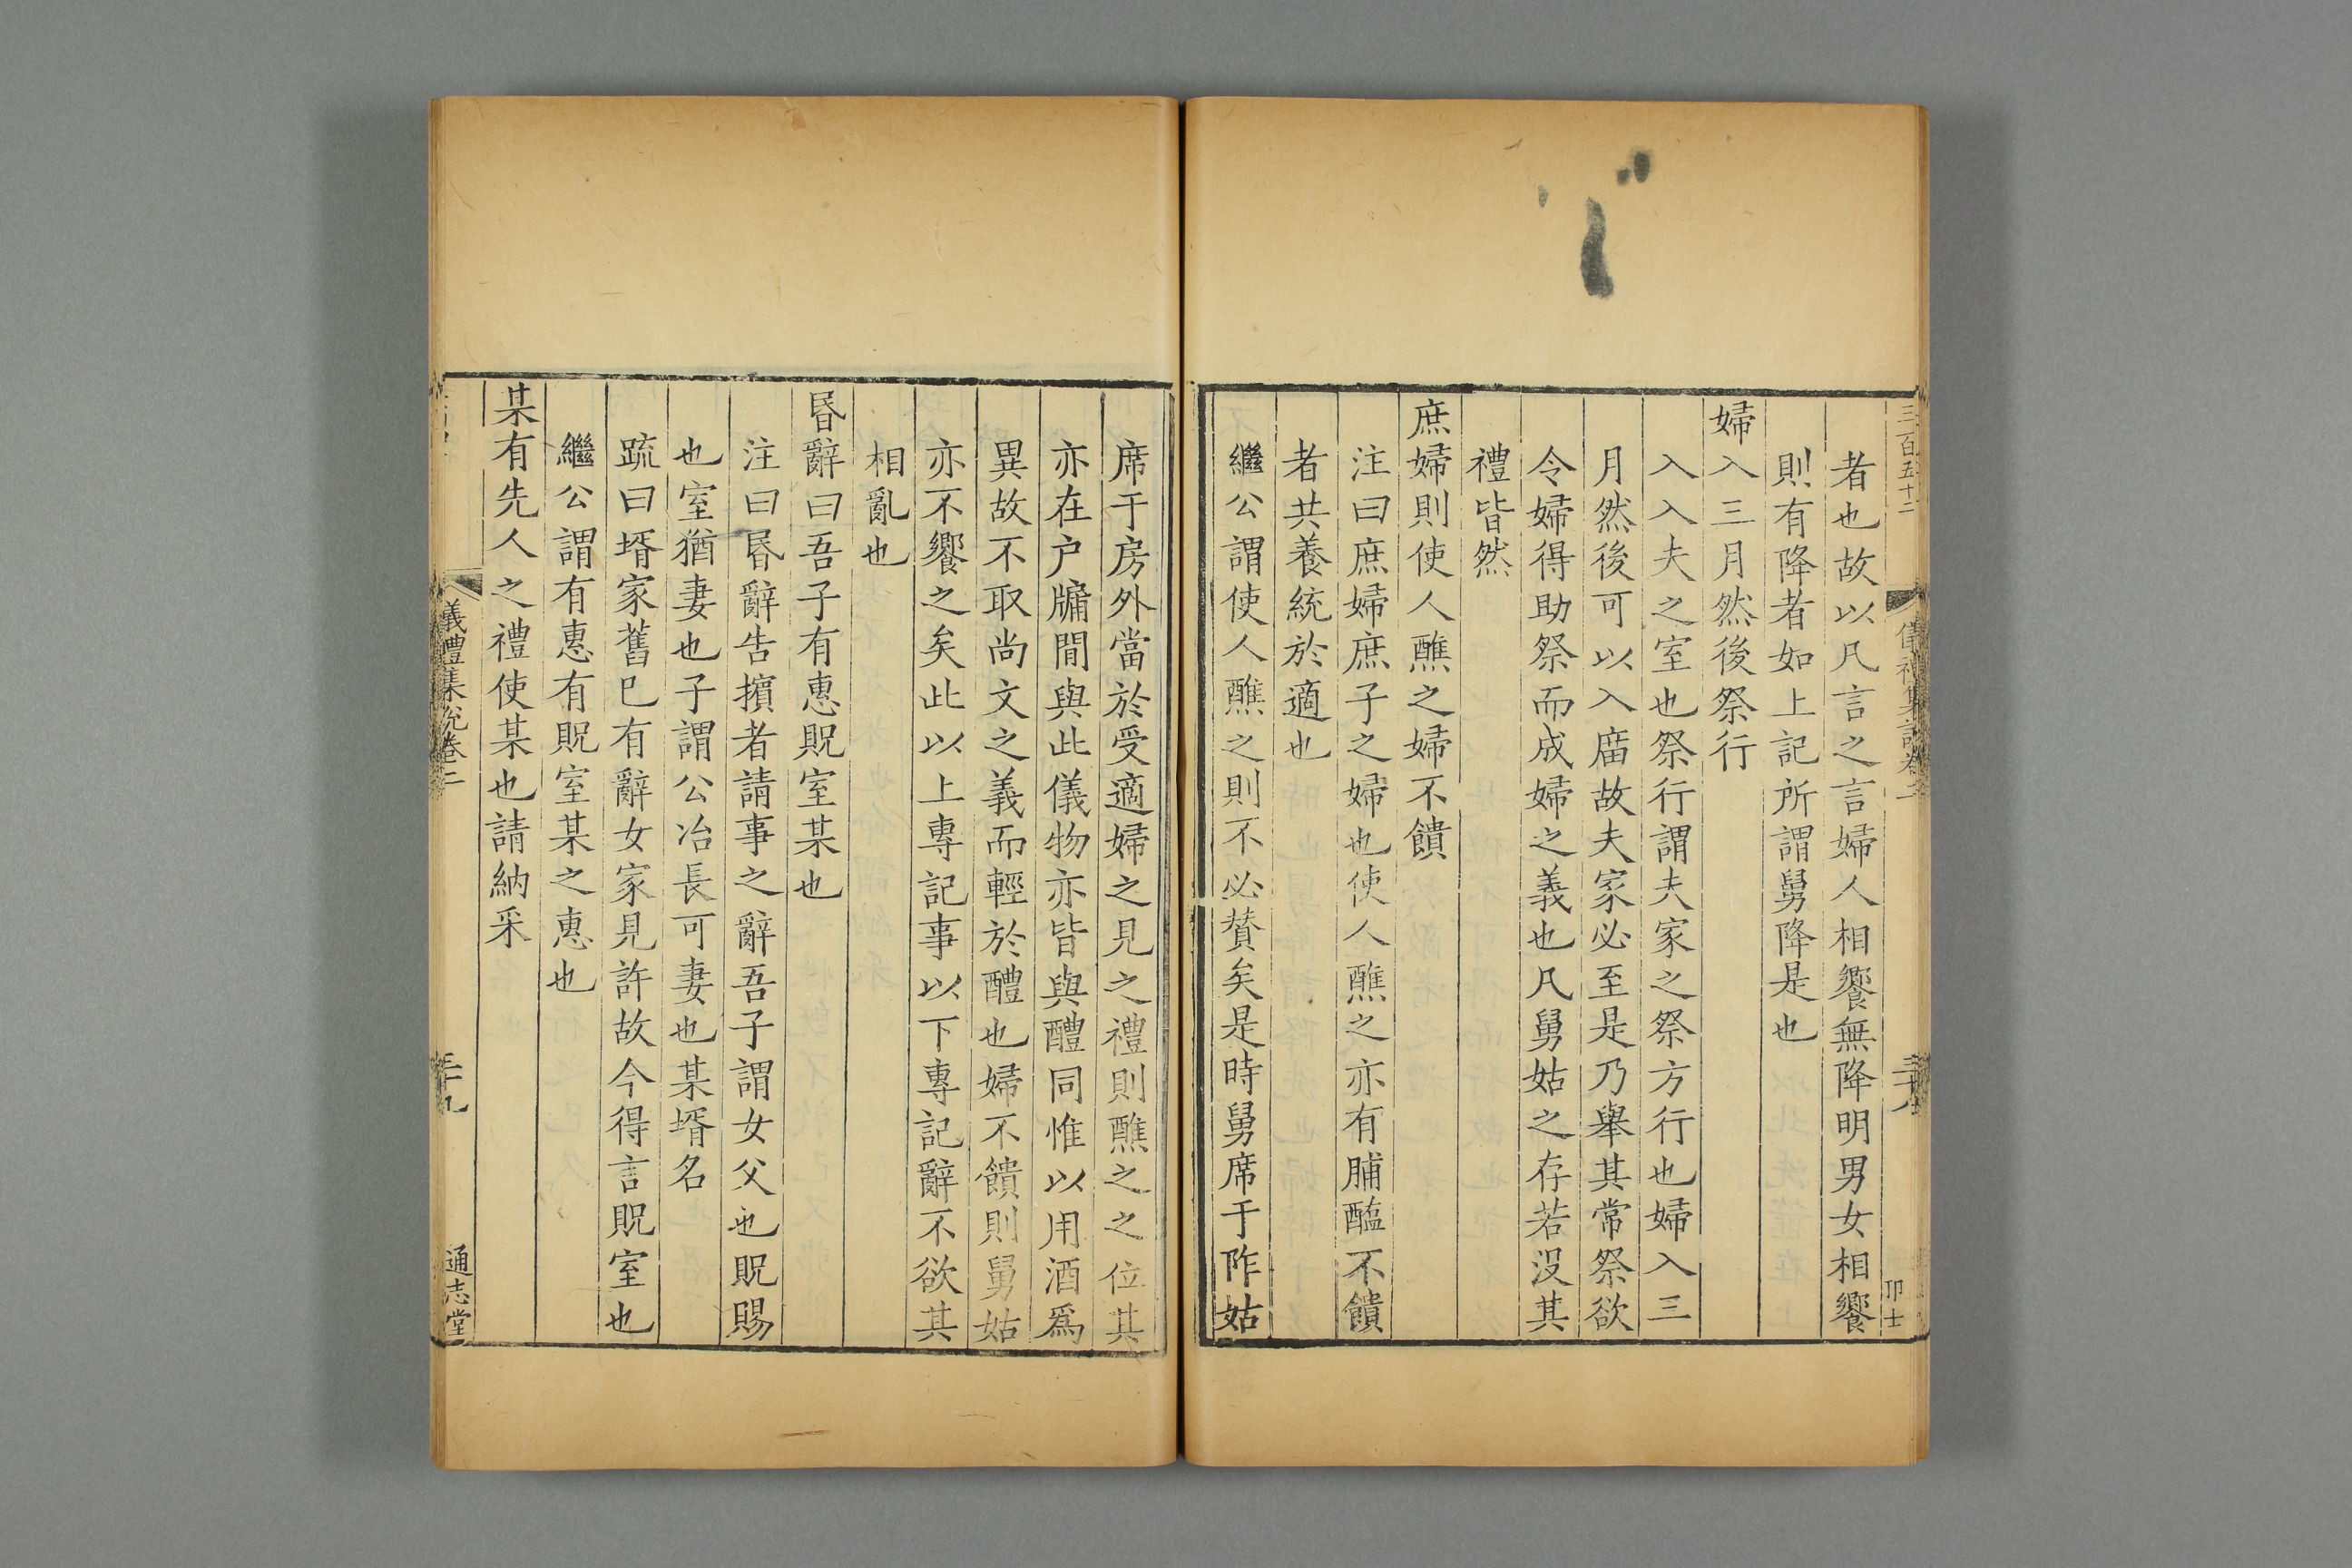 三百五十二
儀禮集說卷二
三十八
卭士
者也故以凡言之言婦人相饗無降明男女相饗
則有降者如上記所謂舅降是也
婦入三月然後祭行
入入夫之室也祭行謂夫家之祭方行也婦入三
月然後可以入庿故夫家必至是乃舉其常祭欲
令婦得助祭而成婦之義也凡舅姑之存若没其
禮皆然
庶婦則使人醮之婦不饋
注曰庶婦庶子之婦也使人醮之亦有脯醢不饋
者共養統於適也
繼公謂使人醮之則不必贊矣是時舅席于阼姑
席于房外當於受適婦之見之禮則醮之之位其
亦在户牖間與此儀物亦皆與醴同惟以用酒爲
異故不取尚文之義而輕於醴也婦不饋則舅姑
亦不饗之矣此以上專記事以下專記辭不欲其
相亂也
昬辭曰吾子有惠貺室某也
注曰昬辭告擯者請事之辭吾子謂女父也貺賜
也室猶妻也子謂公冶長可妻也某壻名
疏曰壻家舊巳有辭女家見許故今得言貺室也
繼公謂有惠有貺室某之惠也
某有先人之禮使某也請納采
儀禮集說卷二
三十九
通志堂